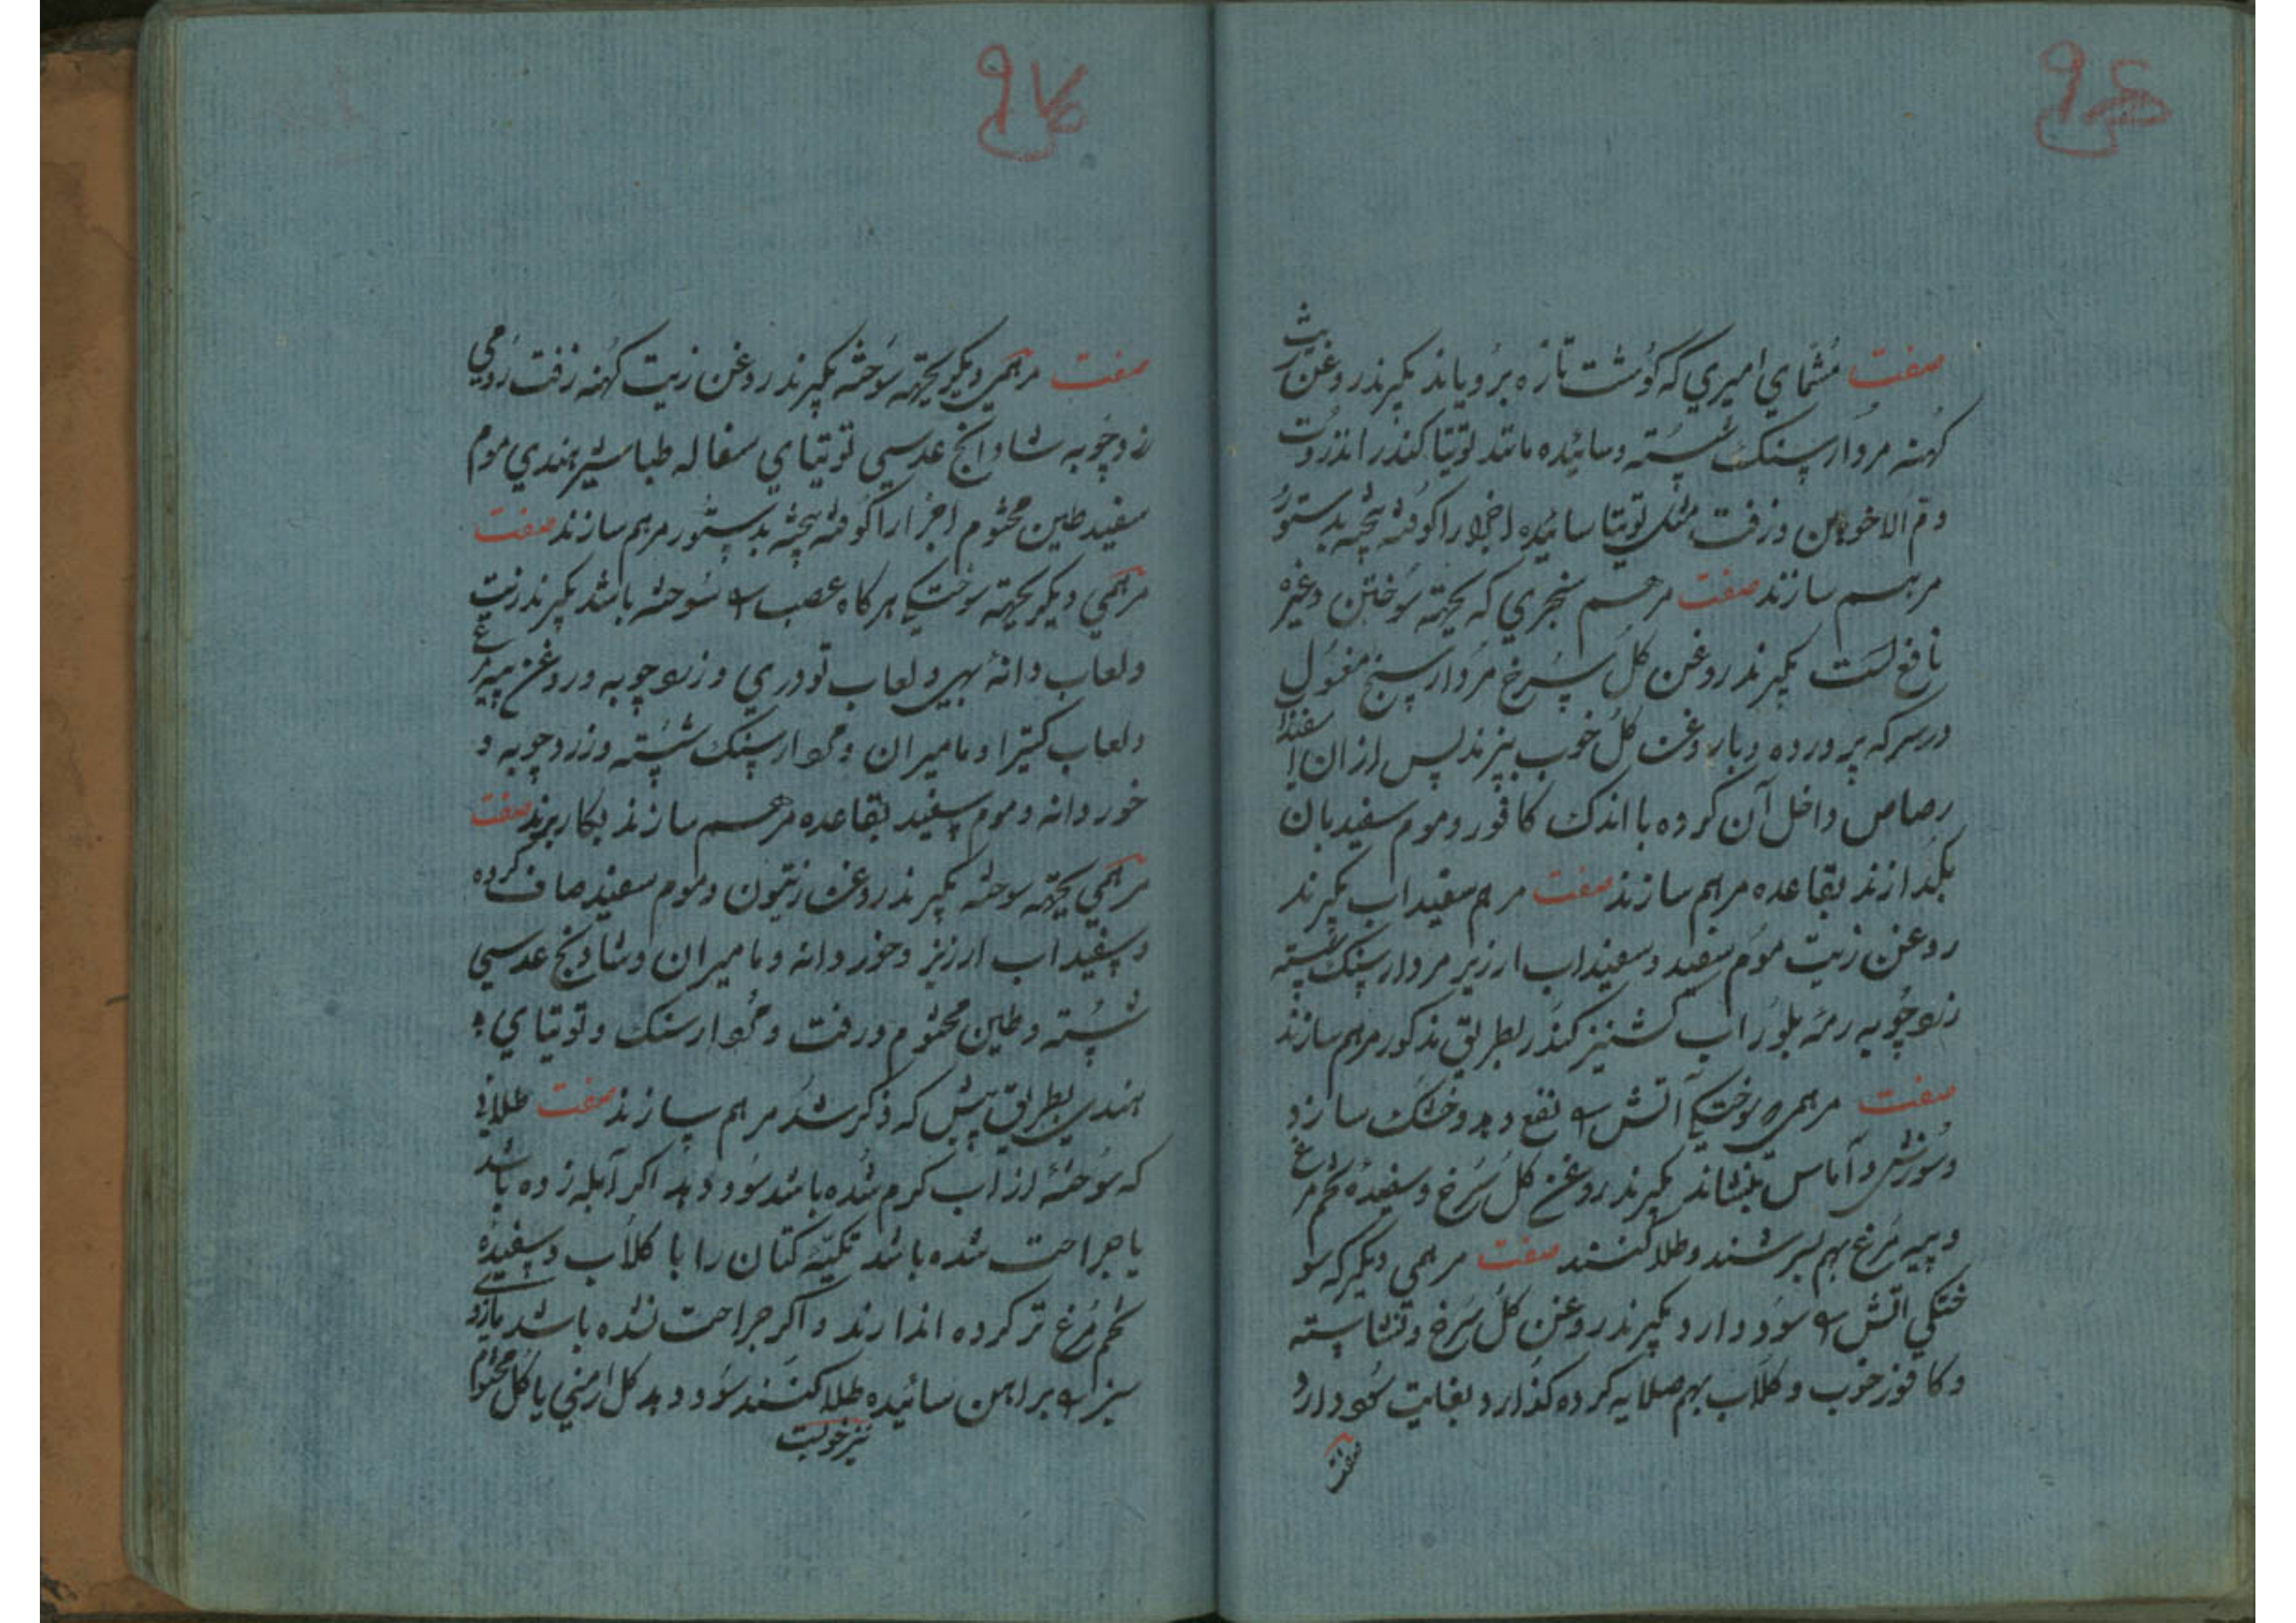 صفت مشمای امیری که گوشت تازه برویاند بگیرند روغن زیت
کهنه مردارسنک شسته و سائیده مانند توتیا کندر انزروت
و دم الاخوین و زفت مثل توتیا سائیده اجزا را کوفته پخته بدستور
مرهم سازند صفت مرهم سنجری که بجهته سوختن و غیره
نافع است بگیرند روغن کل سرخ مردارسنج مغسول
در سرکه پرورده و با روغن کل خوب بپزند پس از ان اسفیداج
رصاص داخل آن کرده با اندک کافور و موم سفید بان
بکدازند بقاعده مرهم سازند صفت مرهم سفیداب بگیرند
روغن زیت موم سفید و سفیداب ارزیز مردارسنک شسته
زردچوبه رمه بلور اب کشنیز کندر بطریق مذکور مرهم سازند
صفت مرهمی سوختکی آتش را نفع دهد و خشک سازد
و سوزش و آماس بنشاند بگیرند روغن کل سرخ و سفیده تخم مرغ
و پیه مرغ بهم بسرشند و طلا کنند صفت مرهمی دیکر که سو
ختکی اتش را سود دارد بگیرند روغن کل سرخ و نشاسته
و کافور خوب و کلاب بهم صلایه کرده کذارد بغایت سود دارد
صفت
۹۷
صفت مرهمی دیکر بجهته سوخته بگیرند روغن زیت کهنه زفت رومی
زردچوبه شادانج عدسی توتیای سفاله طباشیر هندی موم
سفید طین مختوم اجزا را کوفته پخته بدستور مرهم سازند صفت
مرهمی دیکر بجهته سوختکی هرکاه عصب را سوخته باشد بگیرند زیت
و لعاب دانه بهی و لعاب تودری و زردچوبه و روغن پیه مرغ
و لعاب کتیرا و مامیران و مردارسنک شسته و زردچوبه و
خوردانه و موم سفید بقاعده مرهم سازند بکار برند صفت
مرهمی بجهته سوخته بگیرند روغن زیتون و موم سفید صاف کرده
و سفیداب ارزیز و خوردانه و مامیران و شادنج عدسی
شسته و طین مختوم و زفت و مردارسنک و توتیای
هندی بطریق پیش که ذکر شد مرهم سازند صفت طلائی
که سوخته از اب کرم شده باشد سود دهد اکر آبله زده باشد
یا جراحت شده باشد تکیه کتان را با کلاب و سفیده
تخم مرغ تر کرده اندازند و اکر جراحت نشده باشد مازوی
سبز را بر آهن سائیده طلا کنند سود دهد کل ارمنی یا کل مختوم
نیز خوبست